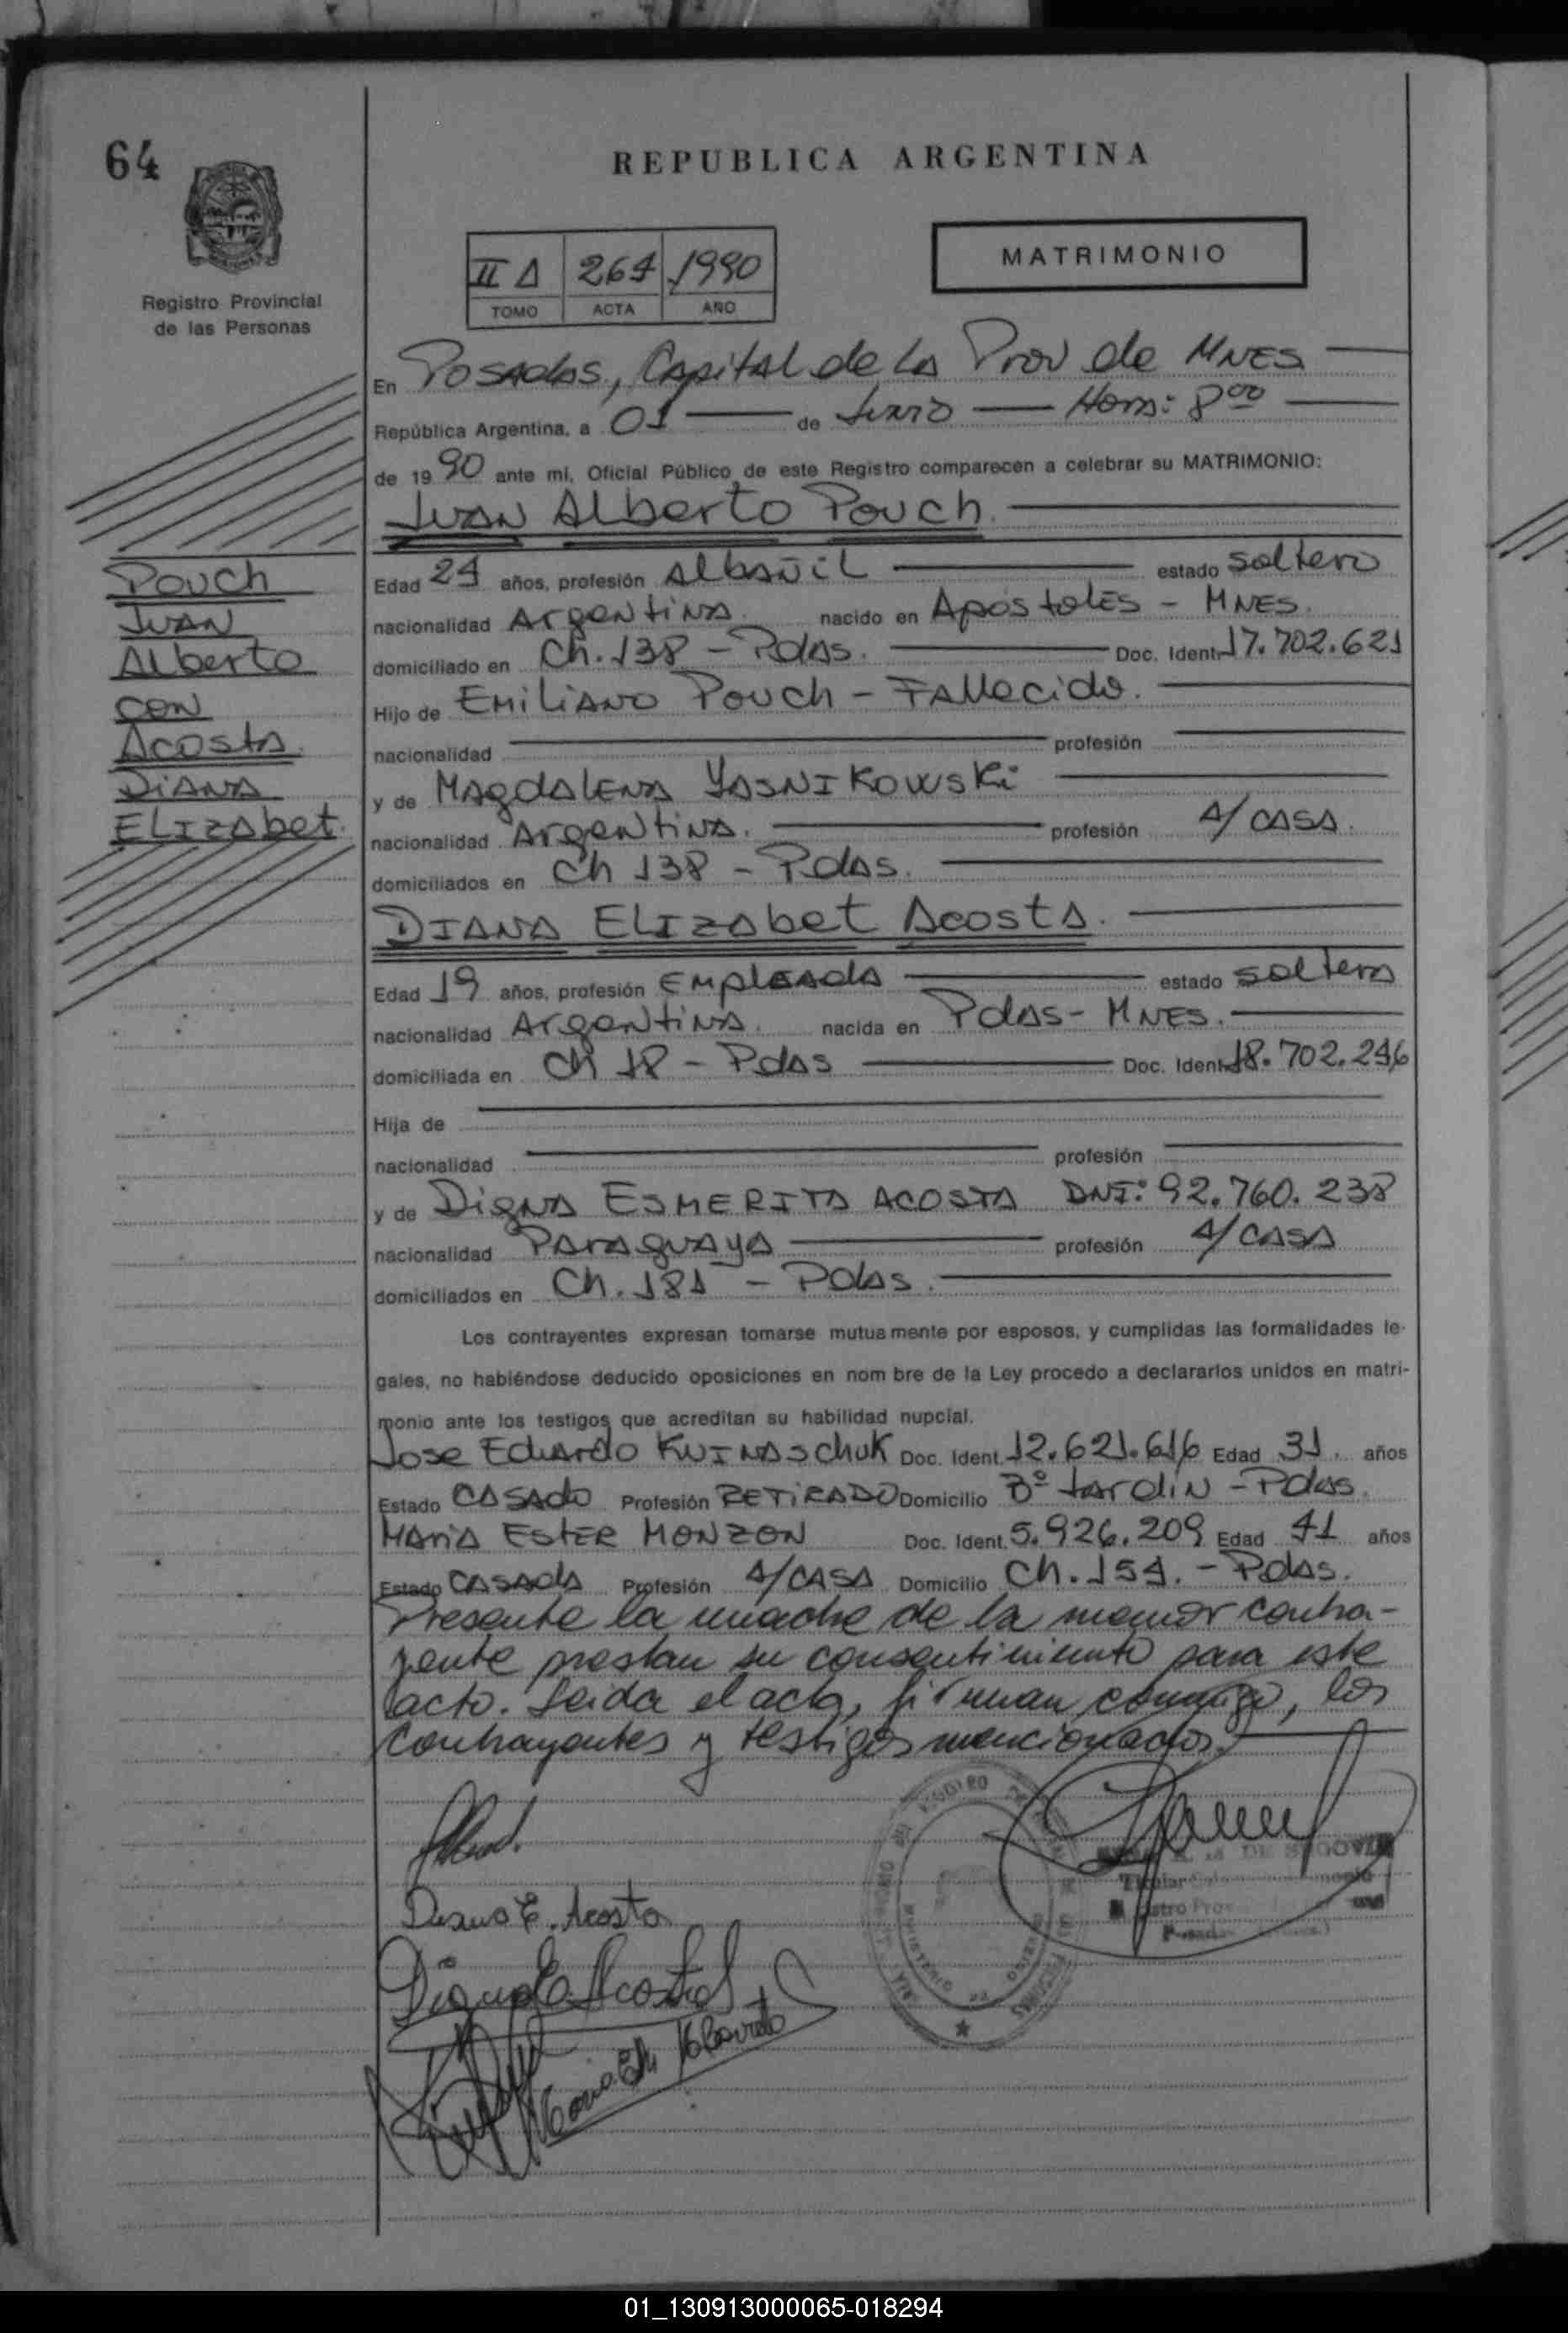 64
REPUBLICA ARGENTINA
MATRIMONIO
Registro Provincial
de las Personas
II A 264 1990
TOMO ACTA AÑO
En Posadas, Capital de la Prov de Mnes
República Argentina, a 01 de Junio Hora: 8 00
de 1990 ante mi, Oficial Público de este Registro comparecen a celebrar su MATRIMONIO:
Juan Alberto Pouch
Pouch
Juan
Alberto
con
Acosta
Diana
Elizabet.
Edad 24 años, profesión Albañil estado soltero
nacionalidad Argentina nacido en Apóstoles - Mnes.
domiciliado en Ch. 138 - Pdas. Doc. Ident. 17.702.621
Hijo de Emiliano Pouch - Fallecido.
nacionalidad profesión
y de Magdalena Yasnikowski
nacionalidad Argentina. profesión A/ casa.
domiciliados en Ch 138 - Pdas.
Diana Elizabet Acosta.
Edad 19 años, profesión Empleada estado soltera
nacionalidad Argentina. nacida en Pdas - Mnes.
domiciliada en Ch 18 - Pdas Doc. Ident. 18.702.246
Hija de
nacionalidad profesión
y de Digna Esmerita Acosta DNI: 92.760.238
nacionalidad Paraguaya profesión A/ casa
domiciliados en Ch. 181 - Pdas.
Los contrayentes expresan tomarse mutuamente por esposos, y cumplidas las formalidades le-
gales, no habiéndose deducido oposiciones en nom bre de la Ley procedo a declararlos unidos en matri-
monio ante los testigos que acreditan su habilidad nupcial.
Jose Eduardo Kwinaschuk Doc. Ident. 12.621.616 Edad 31. años
Estado Casado Profesión Retirado Domicilio Bº Jardin - Pdas.
Maria Ester Monzon Doc. Ident. 5.926.209 Edad 41 años
Estado Casada Profesión A/ casa Domicilio Ch. 154. - Pdas.
Presente la madre de la menor contra-
yente prestan su consentimiento para este
acto. Leida el acta, firman conmigo, los
contrayentes y testigos mencionados.
DE SEGOVIA
Titular
Diana E. Acosta
Digna E. Acosta
MINISTERIO DE
01_130913000065-018294